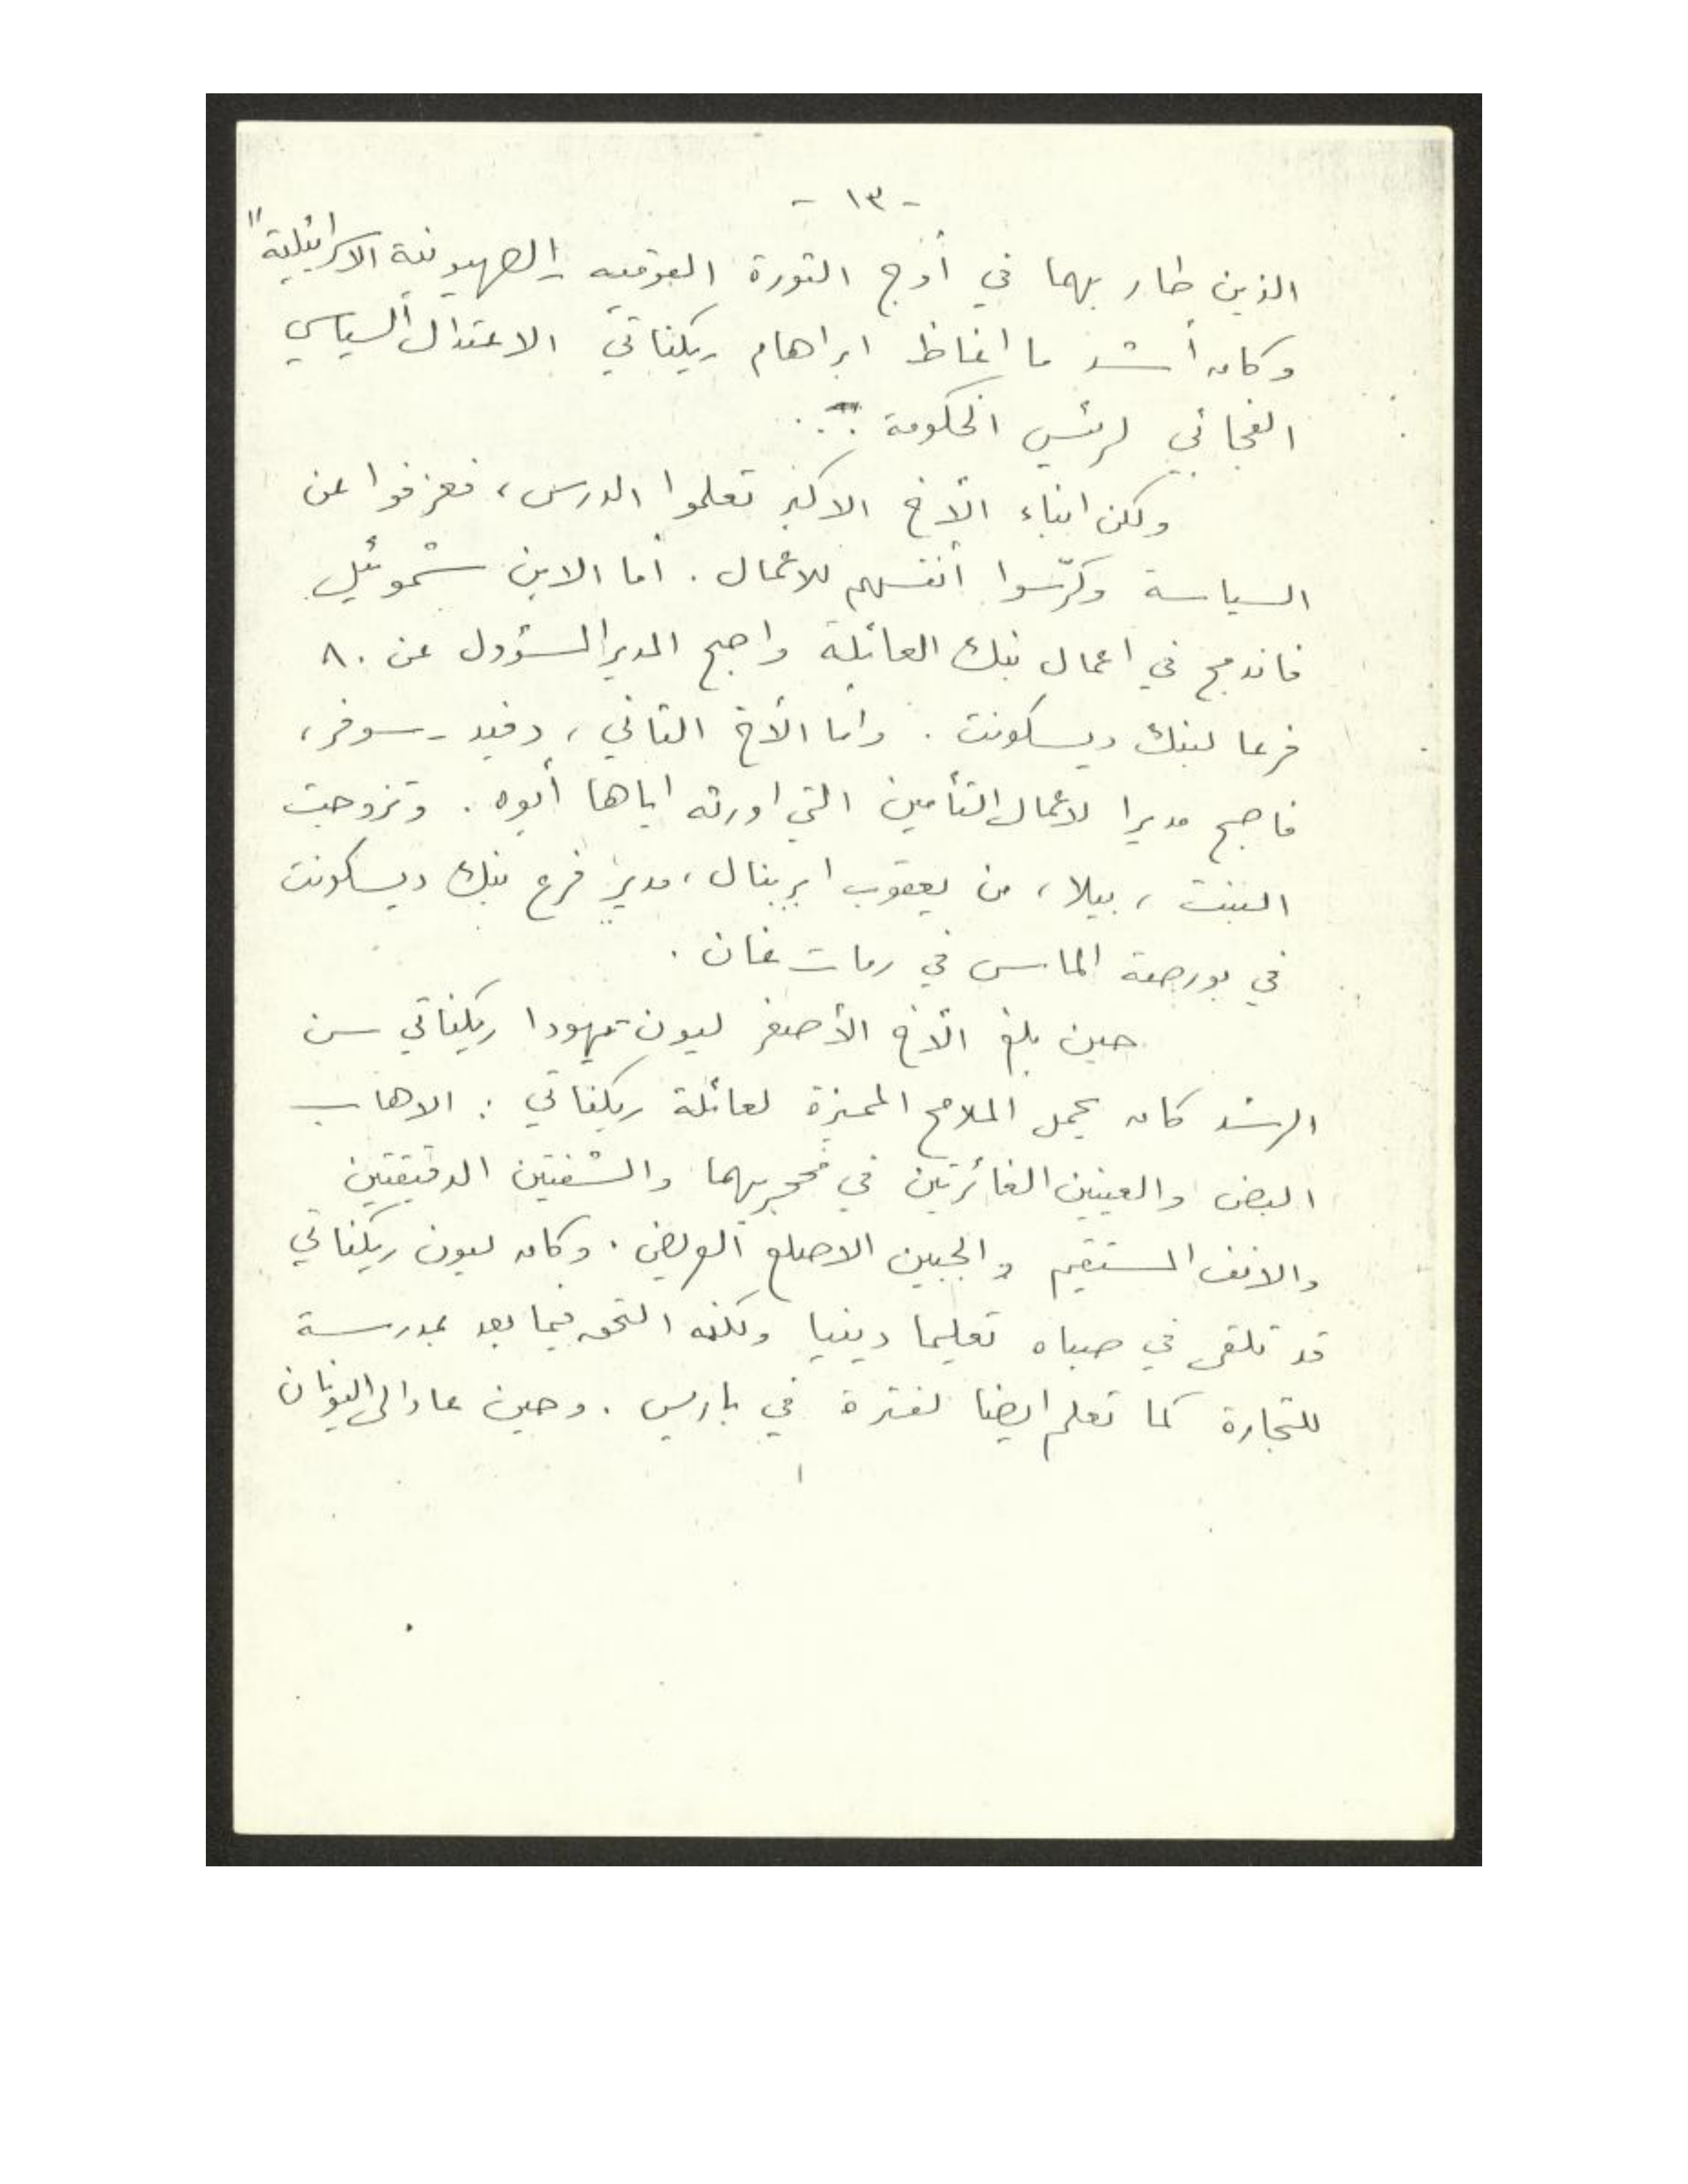 - ١٣ -
الذين طار بهما في أوج الثورة القومية الصهيونية الاسرائيلية"
وكان أشد ما اغاظ ابراهام ريكناتي الاعتدال السياسي
الفجائي لرئيس الحكومة ...
ولكن ابناء الأخ الاكبر تعلموا الدرس، فعزفوا عن
السياسة وكرّسوا أنفسهم للاعمال. أما الابن شموئيل
فاندمج في اعمال بنك العائلة واصبح المدير المسؤول عن ٨٠
فرعا لبنك ديسكونت. وأما الأخ الثاني، دفيد - سوفر،
فاصبح مديرا لاعمال التأمين التي اورثه اياها أبوه. وتزوجت
البنت، بيلا، من يعقوب ابربنال، مدير فرع بنك ديسكونت
في بورصة الماس في رمات غان.
حين بلغ الأخ الأصغر ليون يهودا ريكناتي سن
الرشد كان يحمل الملامح المميزة لعائلة ريكناتي: الاهاب
البض والعينين الغائرتين في محجريهما والشفتين الدقيقتين
والانف المستقيم والجبين الاصلع العريض. وكان ليون ريكناتي
قد تلقى في صباه تعليما دينيا ولكنه التحق فيما بعد بمدرسة
للتجارة كما تعلم ايضا لفترة في باريس. وحين عاد الى اليونان